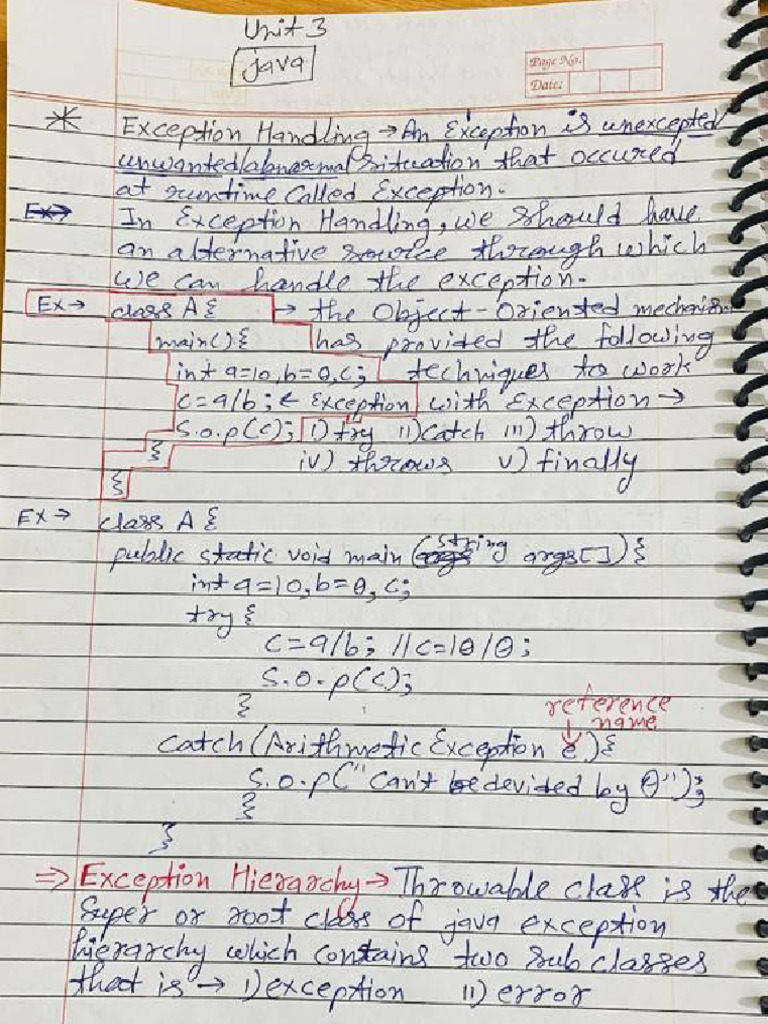 Unit 3
java
Page No.
Date:
* Exception Handling → An Exception is unexcepted/
unwanted/abnormal situation that occured
at runtime called Exception.
Ex→ In Exception Handling, we should have
an alternative source through which
we can handle the exception.
Ex → class A { → the Object-Oriented mechanism
main() { has provided the following
int a=10, b=0, c; techniques to work
c=a/b; ← Exception with Exception →
S.o.p(c); i) try ii) catch iii) throw
} iv) throws v) finally
}
Ex → class A {
public static void main (String args[]) {
int a=10, b=0, c;
try {
c=a/b; //c=10/0;
S.o.p(c);
}
reference
name
catch (Arithmetic Exception e) {
S.o.p("can't be devided by 0");
}
}
⇒ Exception Hierarchy → Throwable class is the
super or root class of java exception
hierarchy which contains two sub classes
that is → i) exception ii) error